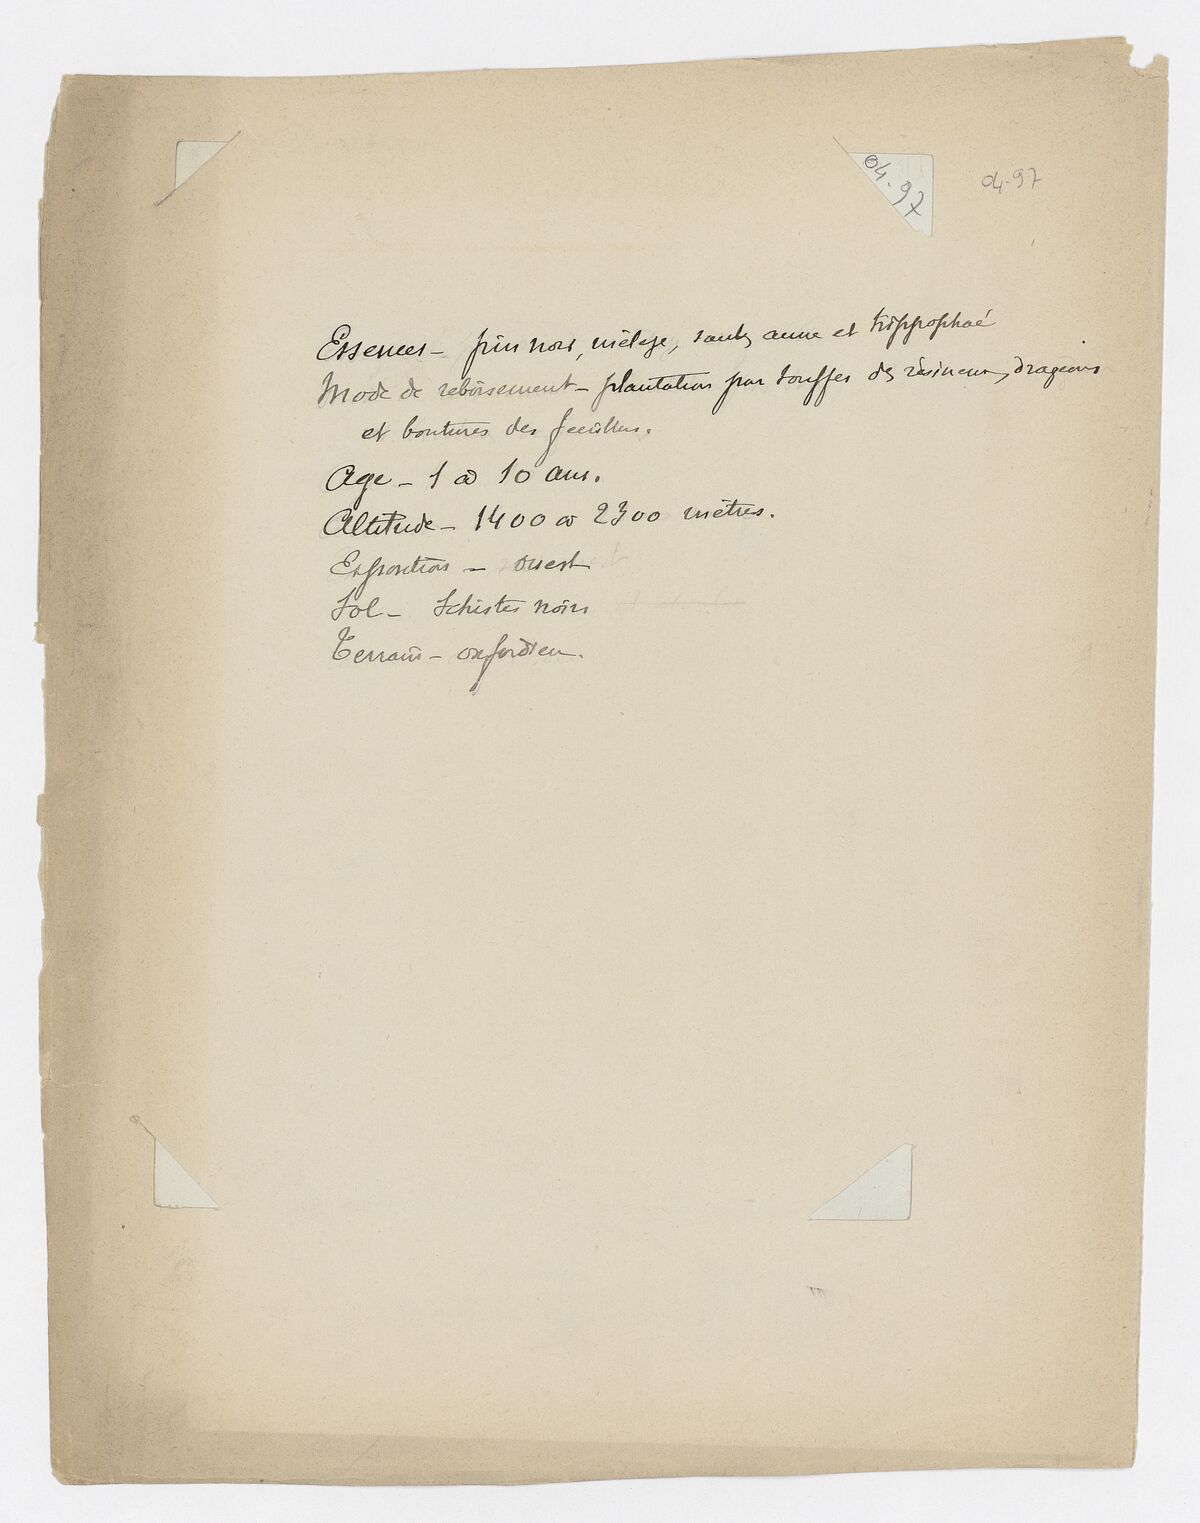 04-97
04-97
Essences - pin noir, mélèze, saule, aune et hippophaé
Mode de reboisement - plantation par touffes des résineux, drageons
et boutures des feuillus.
Age - 1 à 10 ans.
Altitude - 1400 à 2300 mètres.
Exposition - ouest
Sol - Schistes noirs
Terrain - oxfordien.